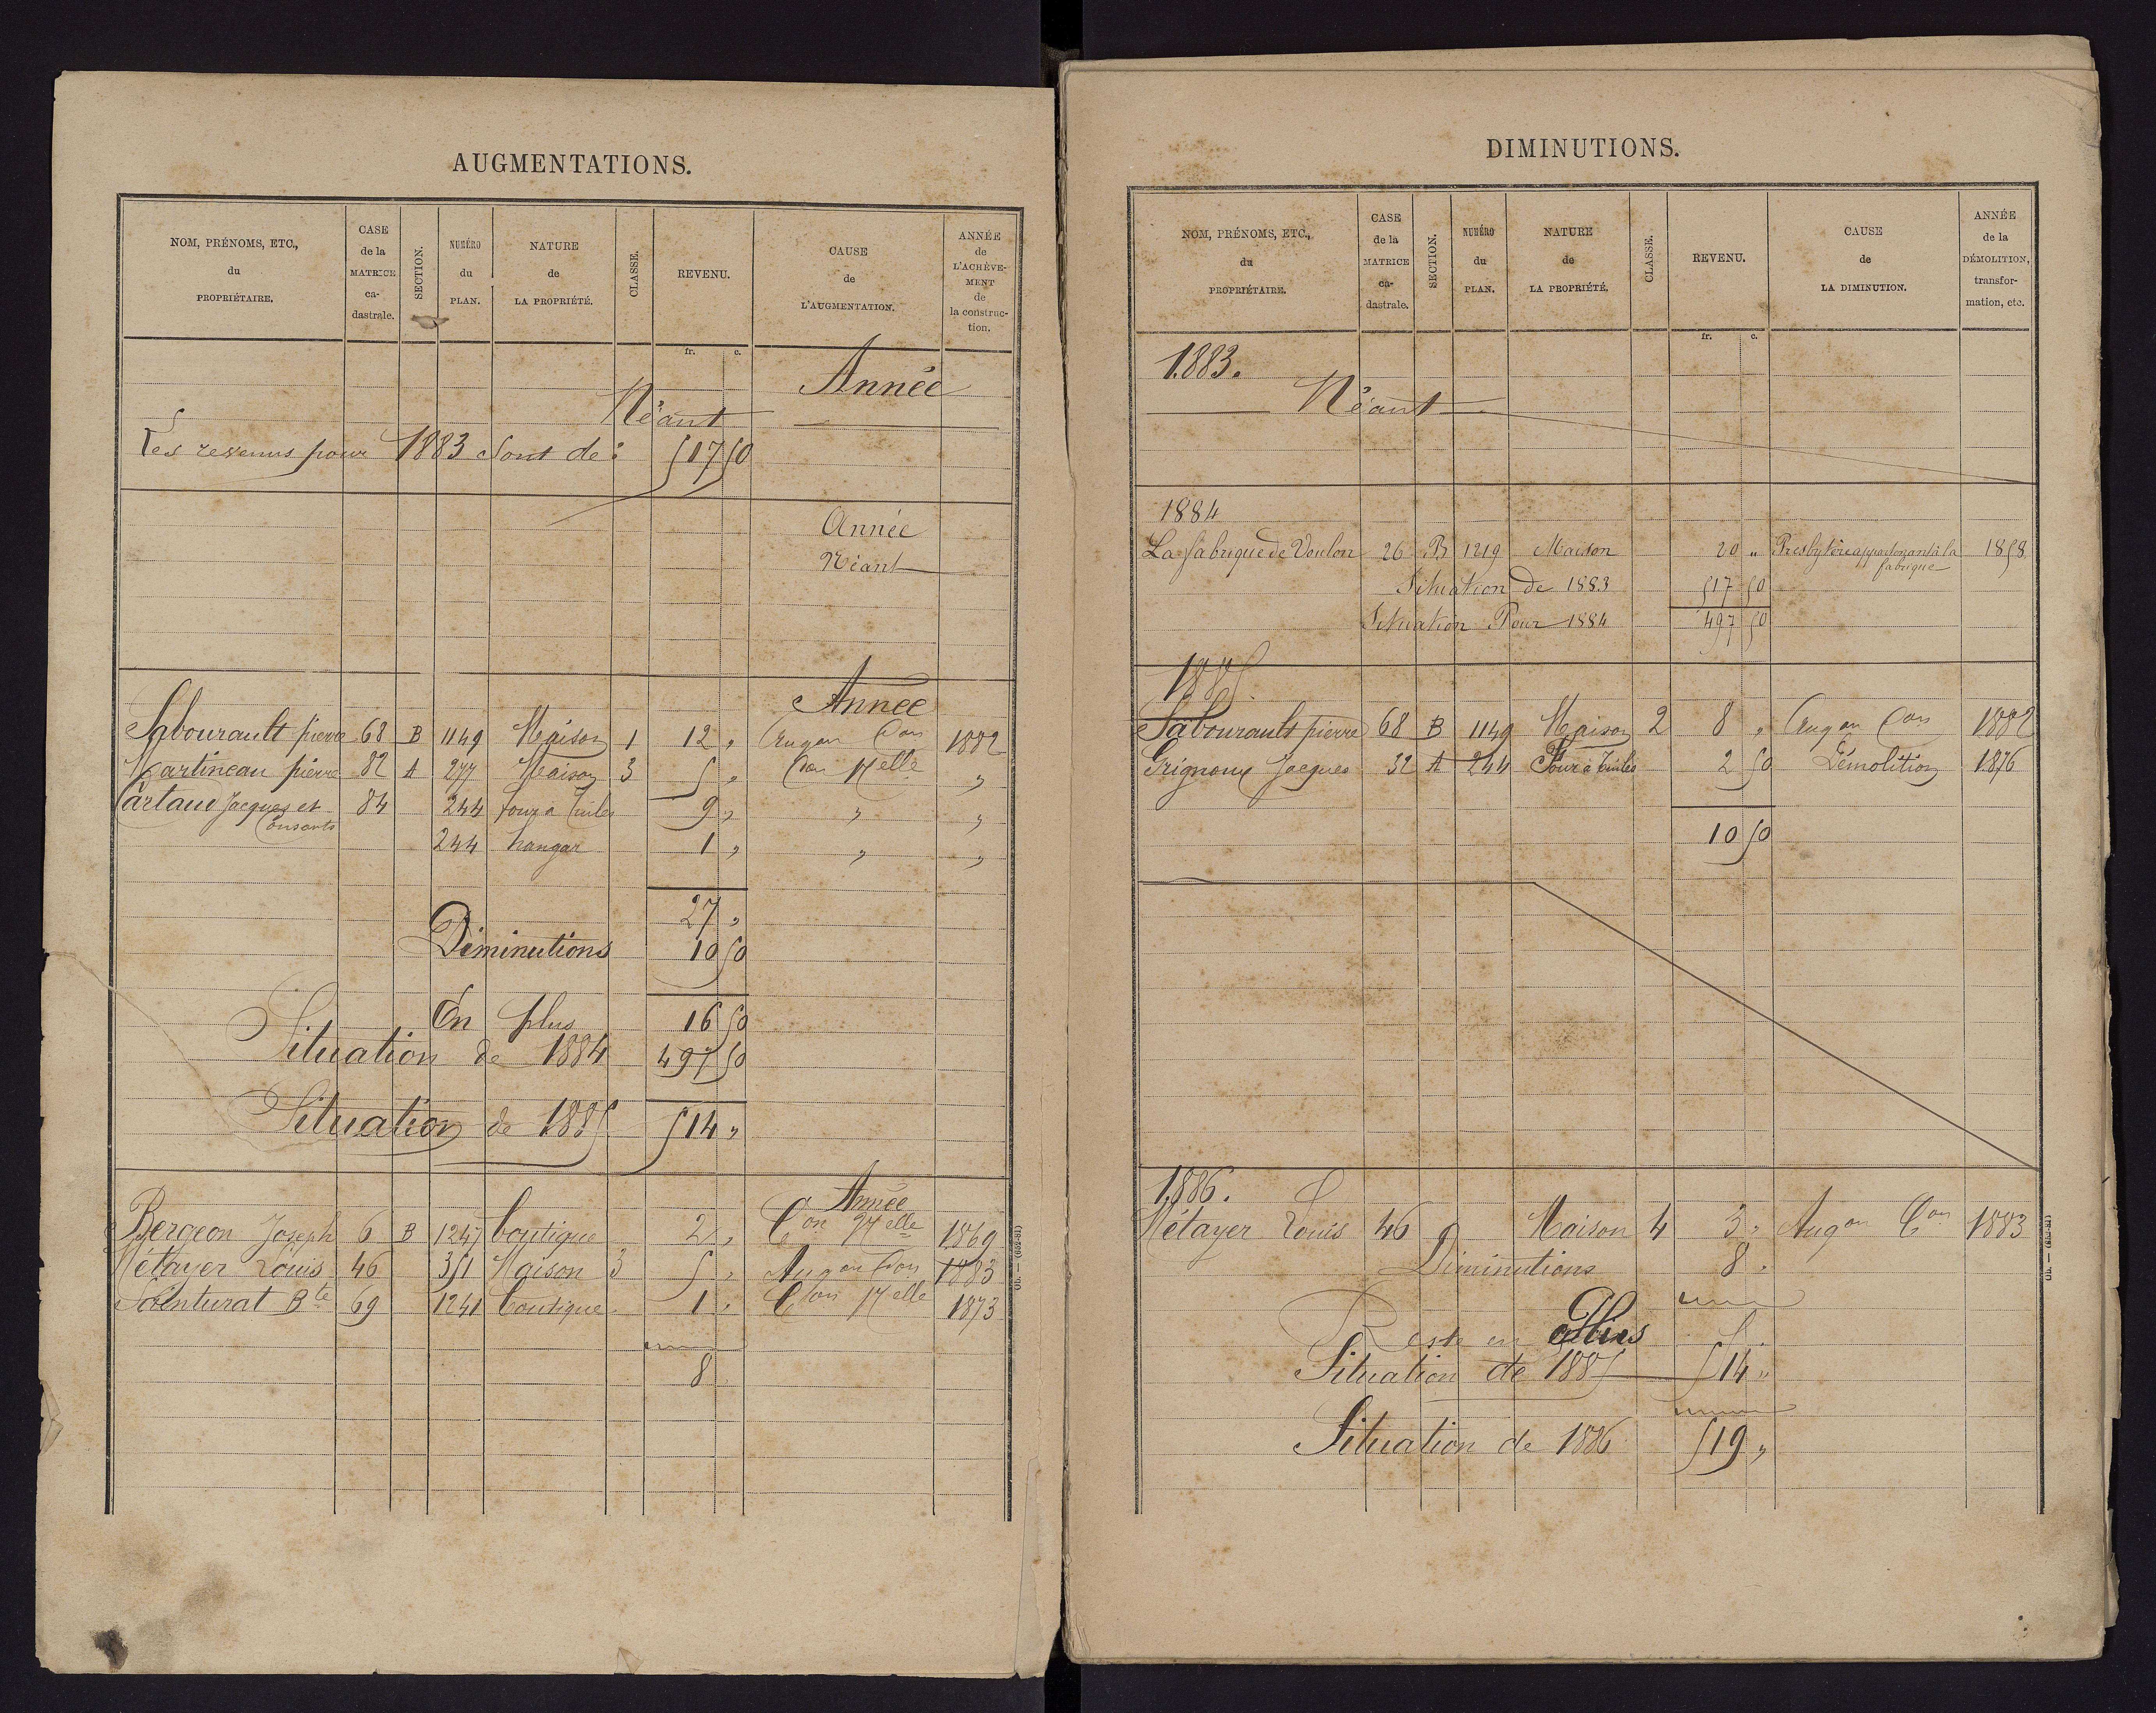 AUGMENTATIONS.
NOM, PRÉNOMS, ETC., du PROPRIÉTAIRE. CASE de la MATRICE ca-dastrale. SECTION. NUMÉRO du PLAN. NATURE de LA PROPRIÉTÉ. CLASSE. REVENU. CAUSE de L'AUGMENTATION. ANNÉE de L'ACHÈVE-MENT de la construc-tion.
fr. c.
Année
Néant
Les revenus pour 1883 sont de : 517 50
Année
Néant
Année
Sabourault pierre 68 B 1149 Maison 1 12 " Augon Con 1882
Martineau pierre 82 A 277 Maison 3 5 " Con Nelle "
Cartaud Jacques et 84 244 four à tuiles 9 " " "
Consorts
244 hangar 1 " " "
27 "
Diminutions 10 50
En plus 16 50
Situation de 1884 497 50
Situation de 1885 514 "
Année
Bergeon Joseph 6 B 1247 boutique 2 " Con Nelle 1869
Métayer Louis 46 351 Maison 3 5 " Augon Con 1883
Bte 69 1241 boutique 1 " Con Nelle 1873
8
Ob. — (652-81)
DIMINUTIONS.
NOM, PRÉNOMS, ETC., du PROPRIÉTAIRE. CASE de la MATRICE ca-dastrale. SECTION. NUMÉRO du PLAN. NATURE de LA PROPRIÉTÉ. CLASSE. REVENU. CAUSE de LA DIMINUTION. ANNÉE de la DÉMOLITION, transfor-mation, etc.
fr. c.
1883.
Néant
1884
La fabrique de Voulon 26 B 1219 Maison 20 " Presbytère appartenant à la 1858
fabrique
Situation de 1883 517 50
Situation Pour 1884 497 50
1885.
Sabourault pierre 68 B 1149 Maison 2 8 " Augon Con 1882
Grignoux Jacques 32 A 244 Four à tuiles 2 50 Démolition 1876
10 50
1886.
Métayer Louis 46 Maison 4 3 " Augon Con 1883
Diminutions 8 "
Reste en Plus 5 "
Situation de 1885 514 "
Situation de 1886 519 "
Ob. — (652-81)